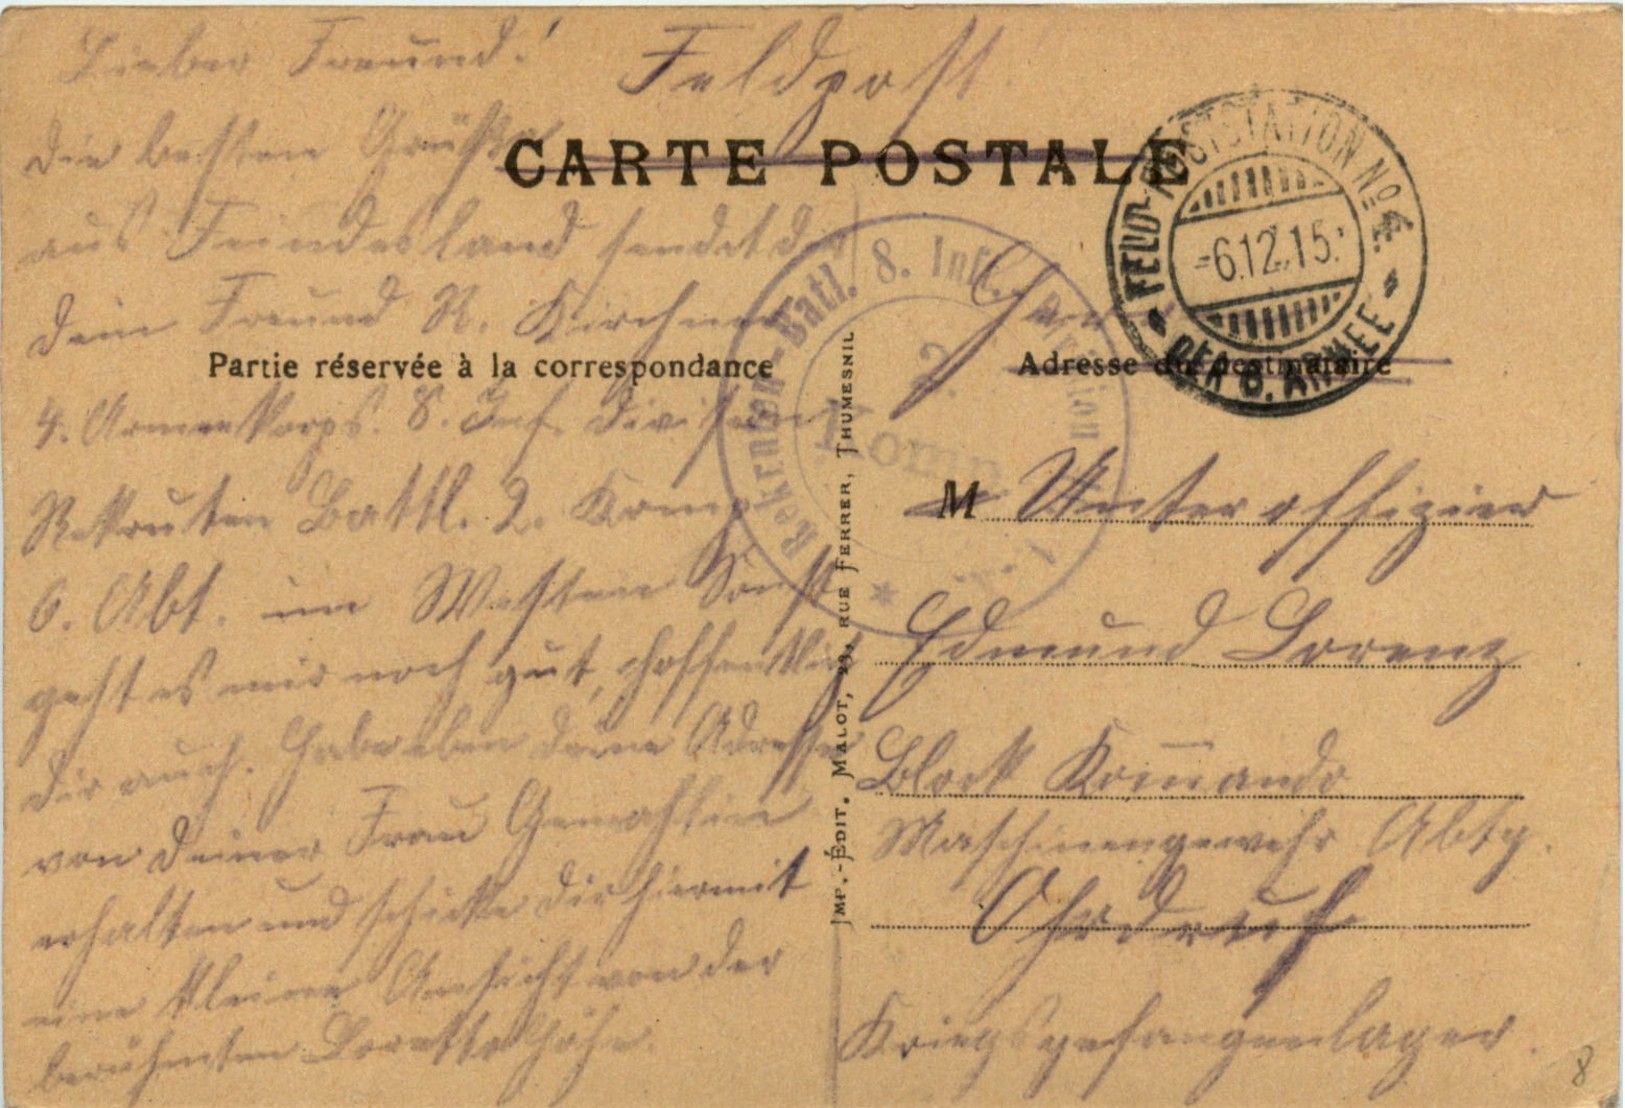 Lieber Freund!
Feldpost
die besten Grüße
CARTE POSTALE
aus Feindesland sendet dir
dein Freund R. Kirchner
Partie réservée à la correspondance
4. Armeekorps. 8. Inf. Division
Rekruten Battl. 2. Komp.
6. Abt. im Westen Sonst
geht es mir noch gut, hoffentlich
dir auch. Habe eben deine Adresse
von deiner Frau Gemahlin
erhalten und schicke dir hiermit
eine kleine Ansicht von der
berühmten Lorettohöhe.
FELD-POSTSTATION No. 4
-6.12.15.
DER 6. ARMEE
Rekruten-Batl. 8. Inf. Division
2.
Komp.
Adresse du destinataire
M Unteroffizier
Edmund Lorenz
Block Kommando
Maschinengewehr Abtg.
Ohrdruf
Kriegsgefangenlager.
IMP.-ÉDIT. MALOT, 23, RUE FERRER, THUMESNIL
8